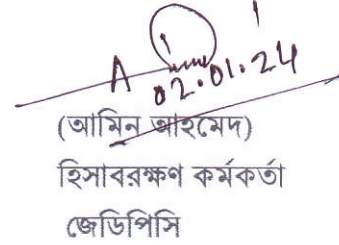 02.01.24
(আমিন আহমেদ)
হিসাবরক্ষণ কর্মকর্তা
জেডিপিসি